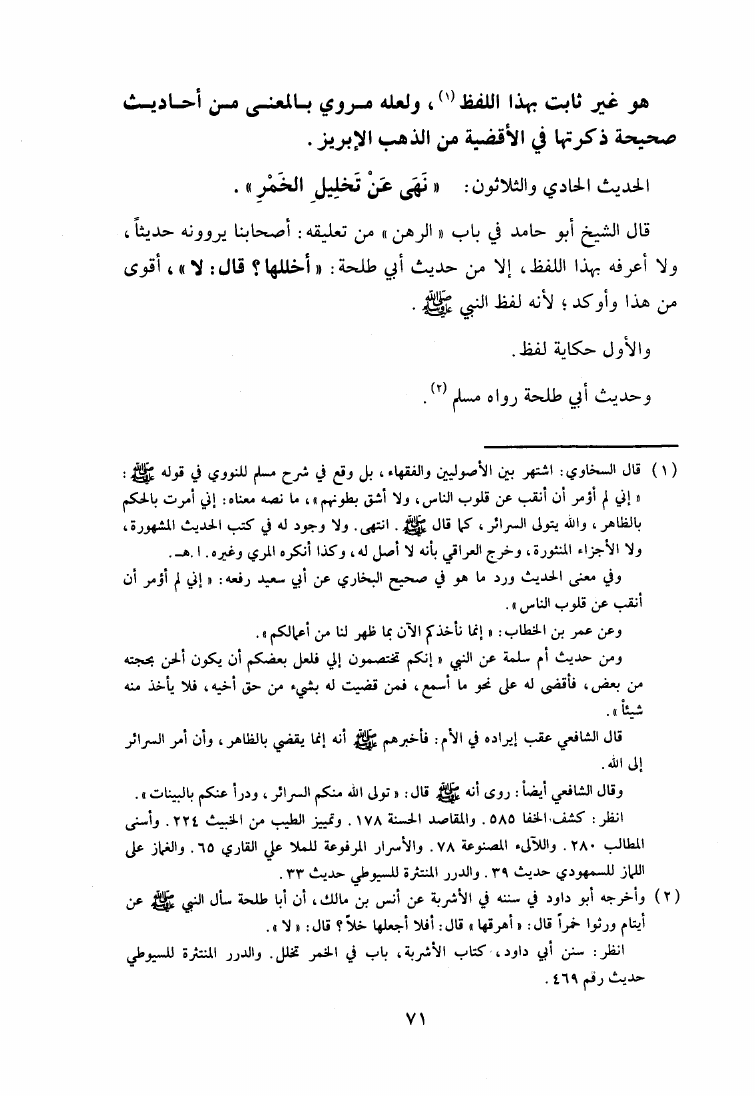 هو غير ثابت بهذا اللفظ (١) ، ولعله مـروي بـالمعنـى مـن أحـاديـث
صحيحة ذكرتها في الأقضية من الذهب الإبريز .
الحديث الحادي والثلاثون : « نَهَى عَنْ تَخْلِيلِ الخَمْرِ » .
قال الشيخ أبو حامد في باب « الرهن » من تعليقه : أصحابنا يروونه حديثاً ،
ولا أعرفه بهذا اللفظ ، إلا من حديث أبي طلحة : « أخللها ؟ قال : لا » ، أقوى
من هذا وأوكد ؛ لأنه لفظ النبي ﷺ .
والأول حكاية لفظ .
وحديث أبي طلحة رواه مسلم (٢) .
(١) قال السخاوي : اشتهر بين الأصوليين والفقهاء ، بل وقع في شرح مسلم للنووي في قوله ﷺ :
« إني لم أؤمر أن أنقب عن قلوب الناس ، ولا أشق بطونهم » ، ما نصه معناه : إني أمرت بالحكم
بالظاهر ، والله يتولى السرائر ، كما قال ﷺ . انتهى . ولا وجود له في كتب الحديث المشهورة ،
ولا الأجزاء المنثورة ، وخرج العراقي بأنه لا أصل له ، وكذا أنكره المري وغيره . ا . هـ .
وفي معنى الحديث ورد ما هو في صحيح البخاري عن أبي سعيد رفعه : « إني لم أؤمر أن
أنقب عن قلوب الناس » .
وعن عمر بن الخطاب : « إنما نأخذكم الآن بما ظهر لنا من أعمالكم » .
ومن حديث أم سلمة عن النبي « إنكم تختصمون إلي فلعل بعضكم أن يكون ألحن بحجته
من بعض ، فأقضى له على نحو ما أسمع ، فمن قضيت له بشيء من حق أخيه ، فلا يأخذ منه
شيئاً » .
قال الشافعي عقب إيراده في الأم : فأخبرهم ﷺ أنه إنما يقضي بالظاهر ، وأن أمر السرائر
إلى الله .
وقال الشافعي أيضاً : روى أنه ﷺ قال : « تولى الله منكم السرائر ، ودرأ عنكم بالبينات » .
انظر : كشف الخفا ٥٨٥ . والمقاصد الحسنة ١٧٨ . وتمييز الطيب من الخبيث ٢٢٤ . وأسنى
المطالب ٢٨٠ . واللآلىء المصنوعة ٧٨ . والأسرار المرفوعة للملا علي القاري ٦٥ . والغماز على
اللماز للسمهودي حديث ٣٩ . والدرر المنتثرة للسيوطي حديث ٣٣ .
(٢) وأخرجه أبو داود في سننه في الأشربة عن أنس بن مالك ، أن أبا طلحة سأل النبي ﷺ عن
أيتام ورثوا خمراً قال : « أهرقها » قال : أفلا أجعلها خلاً ؟ قال : « لا » .
انظر : سنن أبي داود ، كتاب الأشربة ، باب في الخمر تخلل . والدرر المنتثرة للسيوطي
حديث رقم ٤٦٩ .
٧١